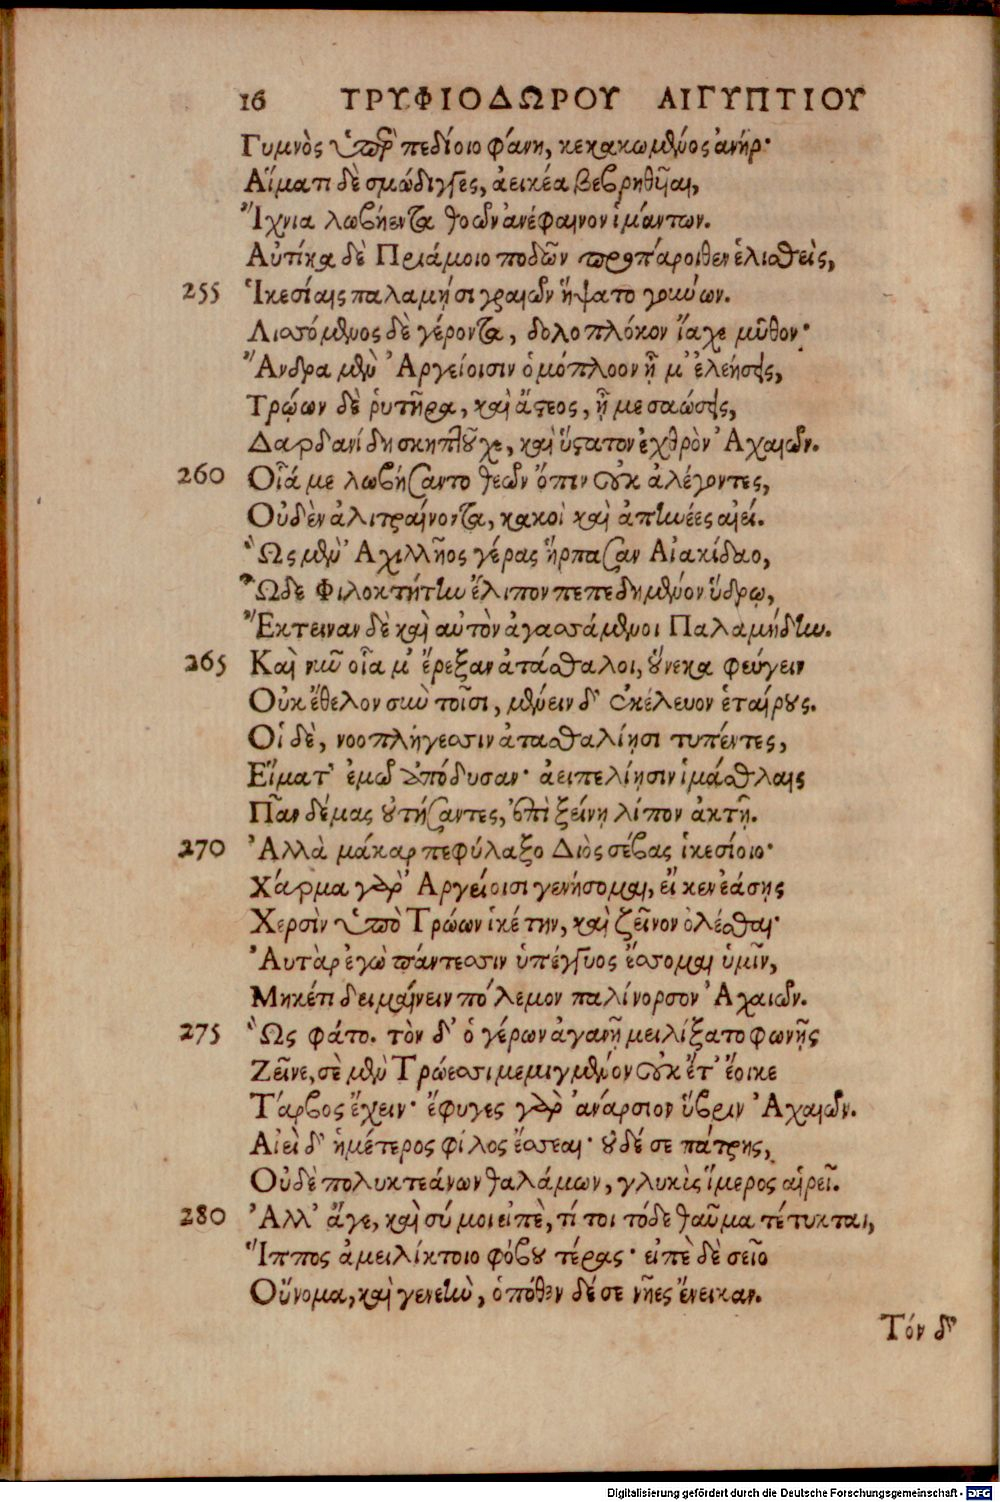 16 ΤΡΥΦΙΟΔΩΡΟΥ ΑΙΓΥΠΤΙΟΥ
Γυμνὸς ὑπὲρ πεδίοιο φάνη, κεκακωμένος ἀνήρ·
Αἵματι δὲ σμώδιγγες, ἀεικέα βεβρηθῦιαι,
Ἴχνια λωβήεντα θοῶν ἀνέφαινον ἱμάντων.
Αὐτίκα δὲ Πριάμοιο ποδῶν προπάροιθεν ἑλιαθεὶς,
255 Ἱκεσίαις παλαμῇσι γεραιῶν ἥψατο γούνων.
Λιασόμενος δὲ γέροντα, δολοπλόκον ἴαχε μῦθον·
Ἄνδρα μὲν Ἀργείοισιν ὁμόπλοον ἢ μ' ἐλεήσῃς,
Τρώων δὲ ῥυτῆρα, καὶ ἄστεος, ἢ με σαώσῃς,
Δαρδανίδη σκηπτοῦχε, καὶ ὕστατον ἐχθρὸν Ἀχαιῶν.
260 Οἷά με λωβήσαντο θεῶν ὄπιν οὐκ ἀλέγοντες,
Οὐδὲν ἀλιτραίνοντα, κακοὶ καὶ ἀπηνέες αἰεί.
Ὣς μὲν Ἀχιλλῆος γέρας ἥρπασαν Αἰακίδαο,
Ὧδε Φιλοκτήτην ἔλιπον πεπεδημένον ὕδρῳ,
Ἔκτειναν δὲ καὶ αὐτὸν ἀγασσάμενοι Παλαμήδην.
265 Καὶ νῦν οἷα μ' ἔρεξαν ἀτάσθαλοι, οὕνεκα φεύγειν
Οὐκ ἔθελον σὺν τοῖσι, μένειν δ' ἐκέλευον ἑταίρους.
Οἱ δὲ, νοοπλήγεσσιν ἀτασθαλίῃσι τυπέντες,
Εἵματ' ἐμῶν ἀπόδυσαν· ἀειπελίῃσιν ἱμάσθλαις
Πᾶν δέμας οὐτήσαντες, ἐπὶ ξείνῃ λίπον ἀκτῇ.
270 Ἀλλὰ μάκαρ πεφύλαξο Διὸς σέβας ἱκεσίοιο·
Χάρμα γὰρ Ἀργείοισι γενήσομαι, εἴ κεν ἐάσῃς
Χερσὶν ὑπὸ Τρώων ἱκέτην, καὶ ζεῖνον ὀλέσθαι·
Αὐτὰρ ἐγὼ πάντεσσιν ὑπέγγυος ἔσσομαι ὑμῖν,
Μηκέτι δειμαίνειν πόλεμον παλίνορσον Ἀχαιῶν.
275 Ὣς φάτο. τὸν δ' ὁ γέρων ἀγανῇ μειλίξατο φωνῇς
Ζεῖνε, σὲ μὲν Τρώεσσι μεμιγμένον οὐκ ἔτ' ἔοικε
Τάρβος ἔχειν· ἔφυγες γὰρ ἀνάρσιον ὕβριν Ἀχαιῶν.
Αἰεὶ δ' ἡμέτερος φίλος ἔσσεαι· οὐδέ σε πάτρης,
Οὐδὲ πολυκτεάνων θαλάμων, γλυκὺς ἵμερος αἱρεῖ.
280 Ἀλλ' ἄγε, καὶ σύ μοι εἰπὲ, τί τοι τόδε θαῦμα τέτυκται,
Ἵππος ἀμειλίκτοιο φόβου τέρας· εἰπὲ δὲ σεῖο
Οὔνομα, καὶ γενεὴν, ὁπόθεν δέ σε νῆες ἔνεικαν.
Τόν δ'
Digitalisierung gefördert durch die Deutsche Forschungsgemeinschaft - DFG